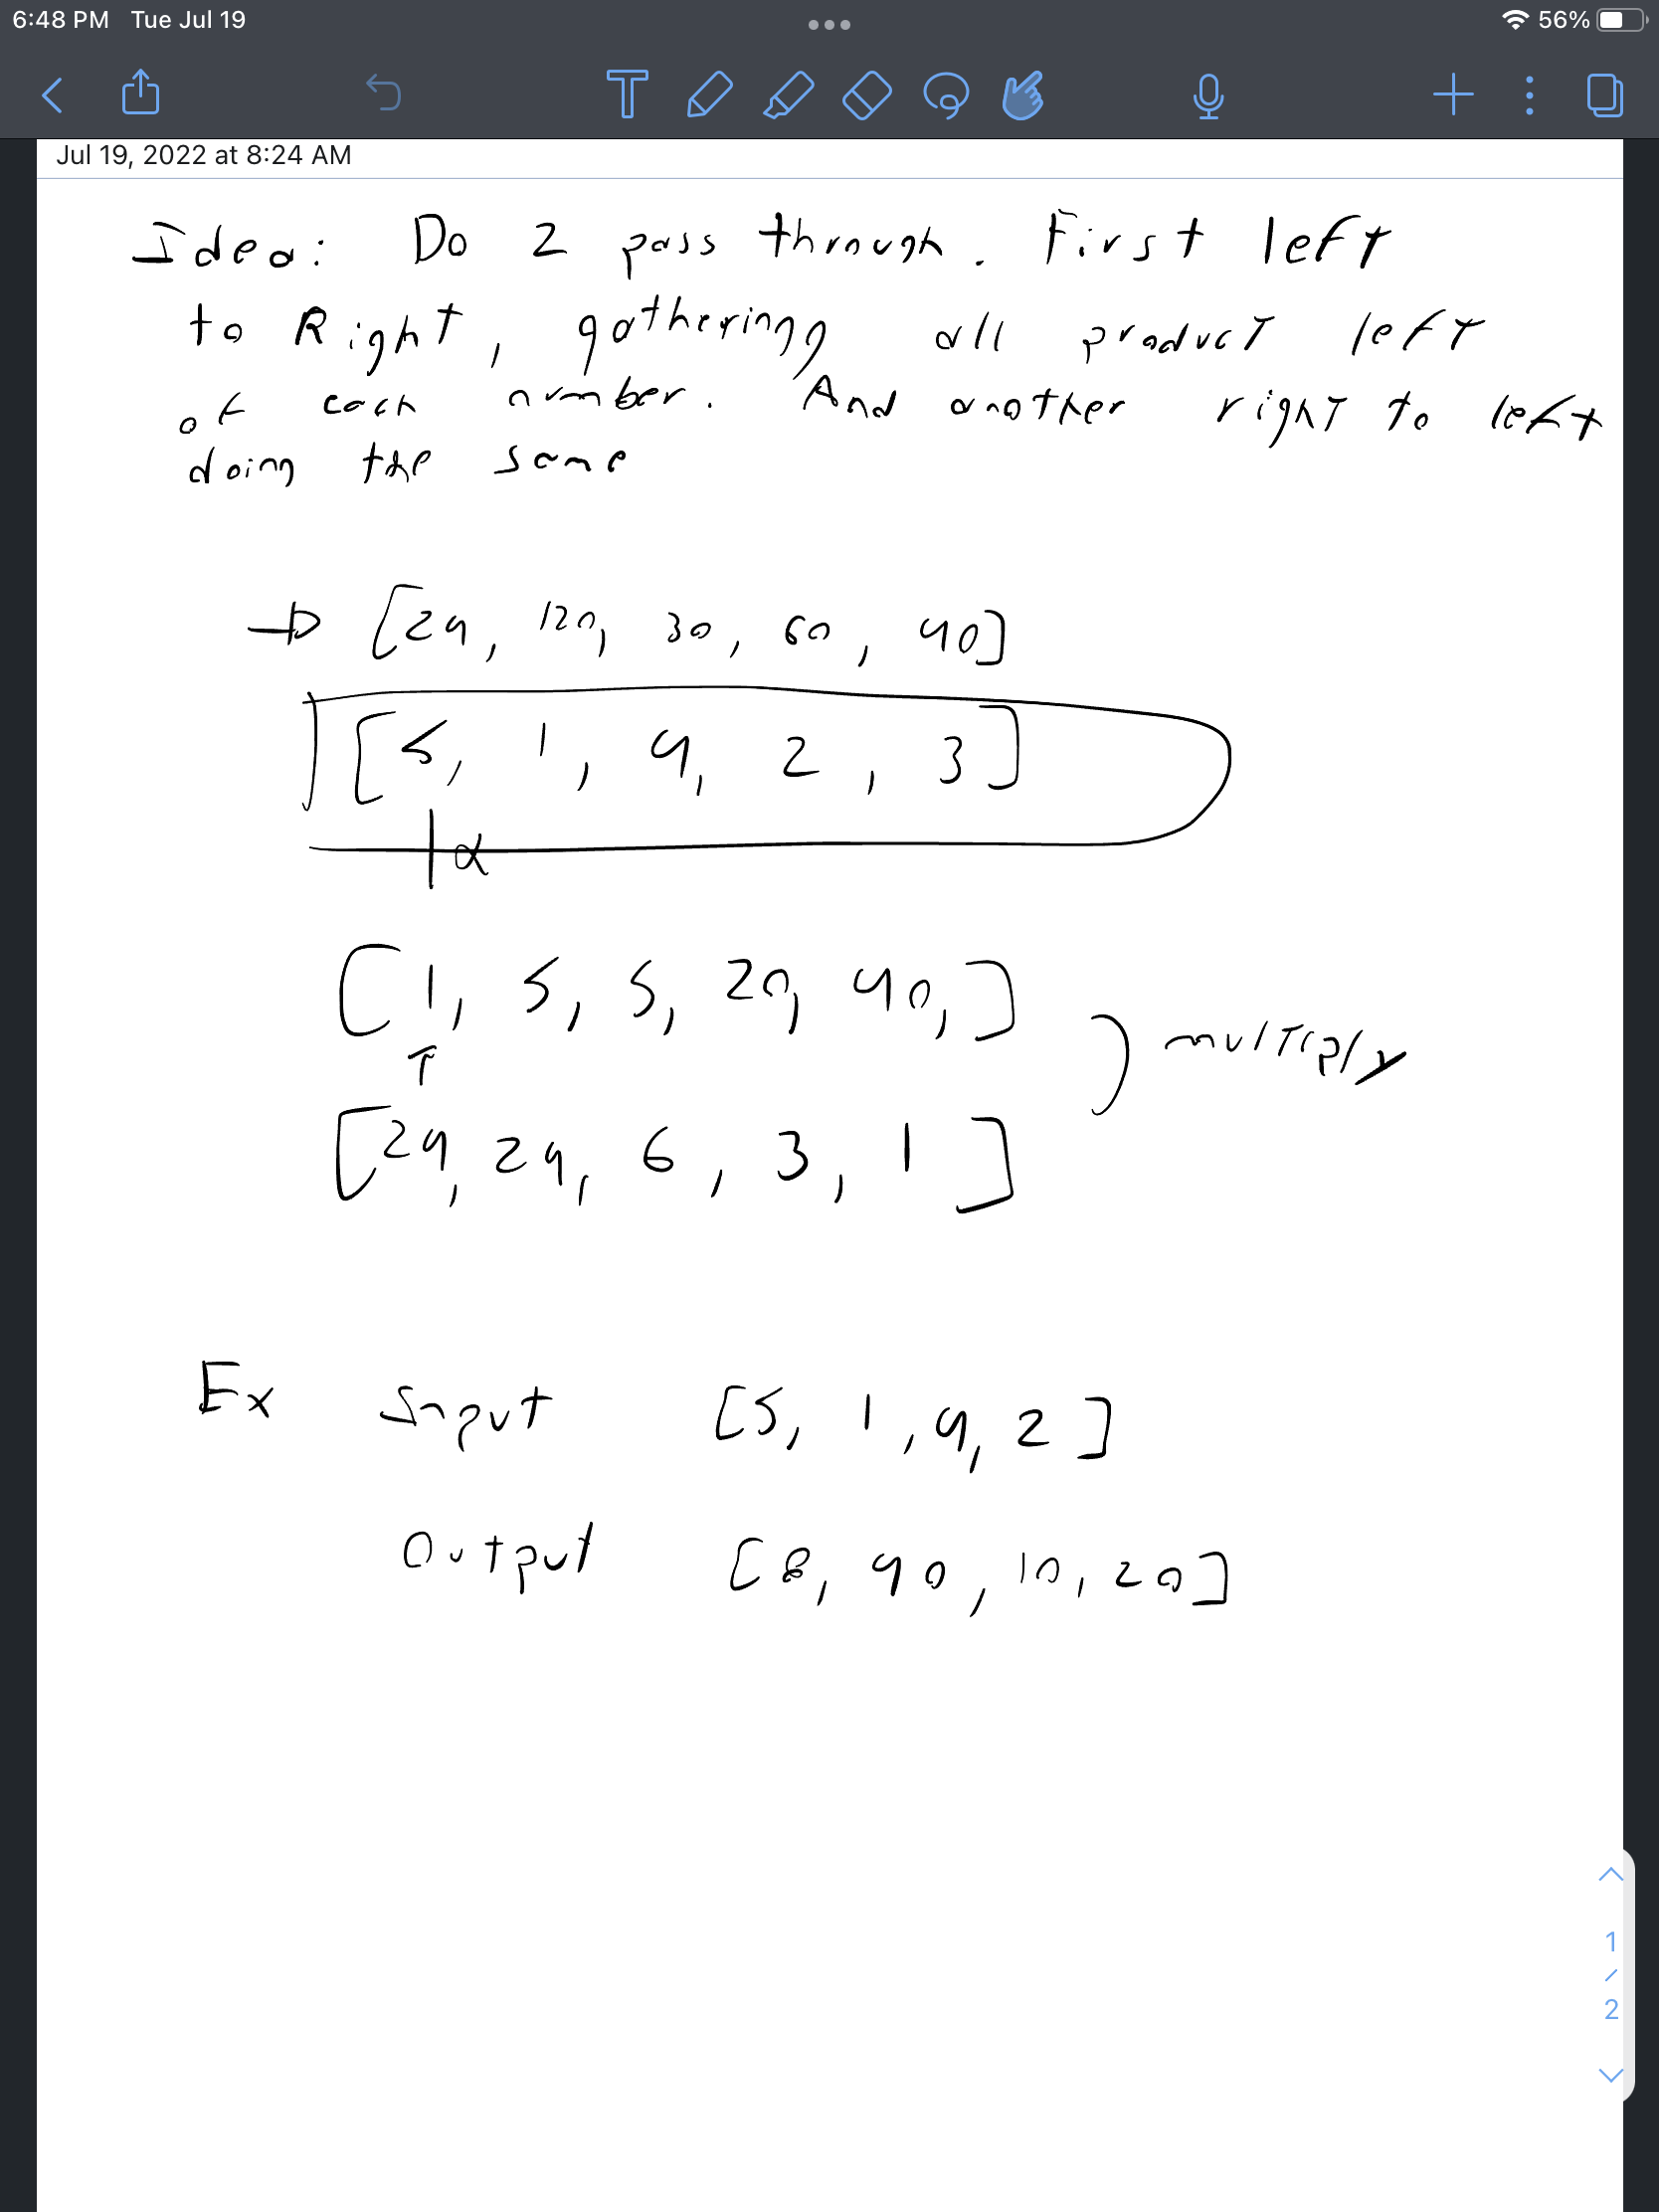 6:48 PM Tue Jul 19
56%
Jul 19, 2022 at 8:24 AM
Idea: Do 2 pass through. First left
to Right, gathering all product left
of each number. And another right to left
doing the same
[24, 120, 30, 60, 40]
[5, 1, 4, 2, 3]
[1, 5, 5, 20, 40,]
multiply
[24, 24, 6, 3, 1]
Ex Input [5, 1, 4, 2]
Output [8, 40, 10, 20]
1
/
2